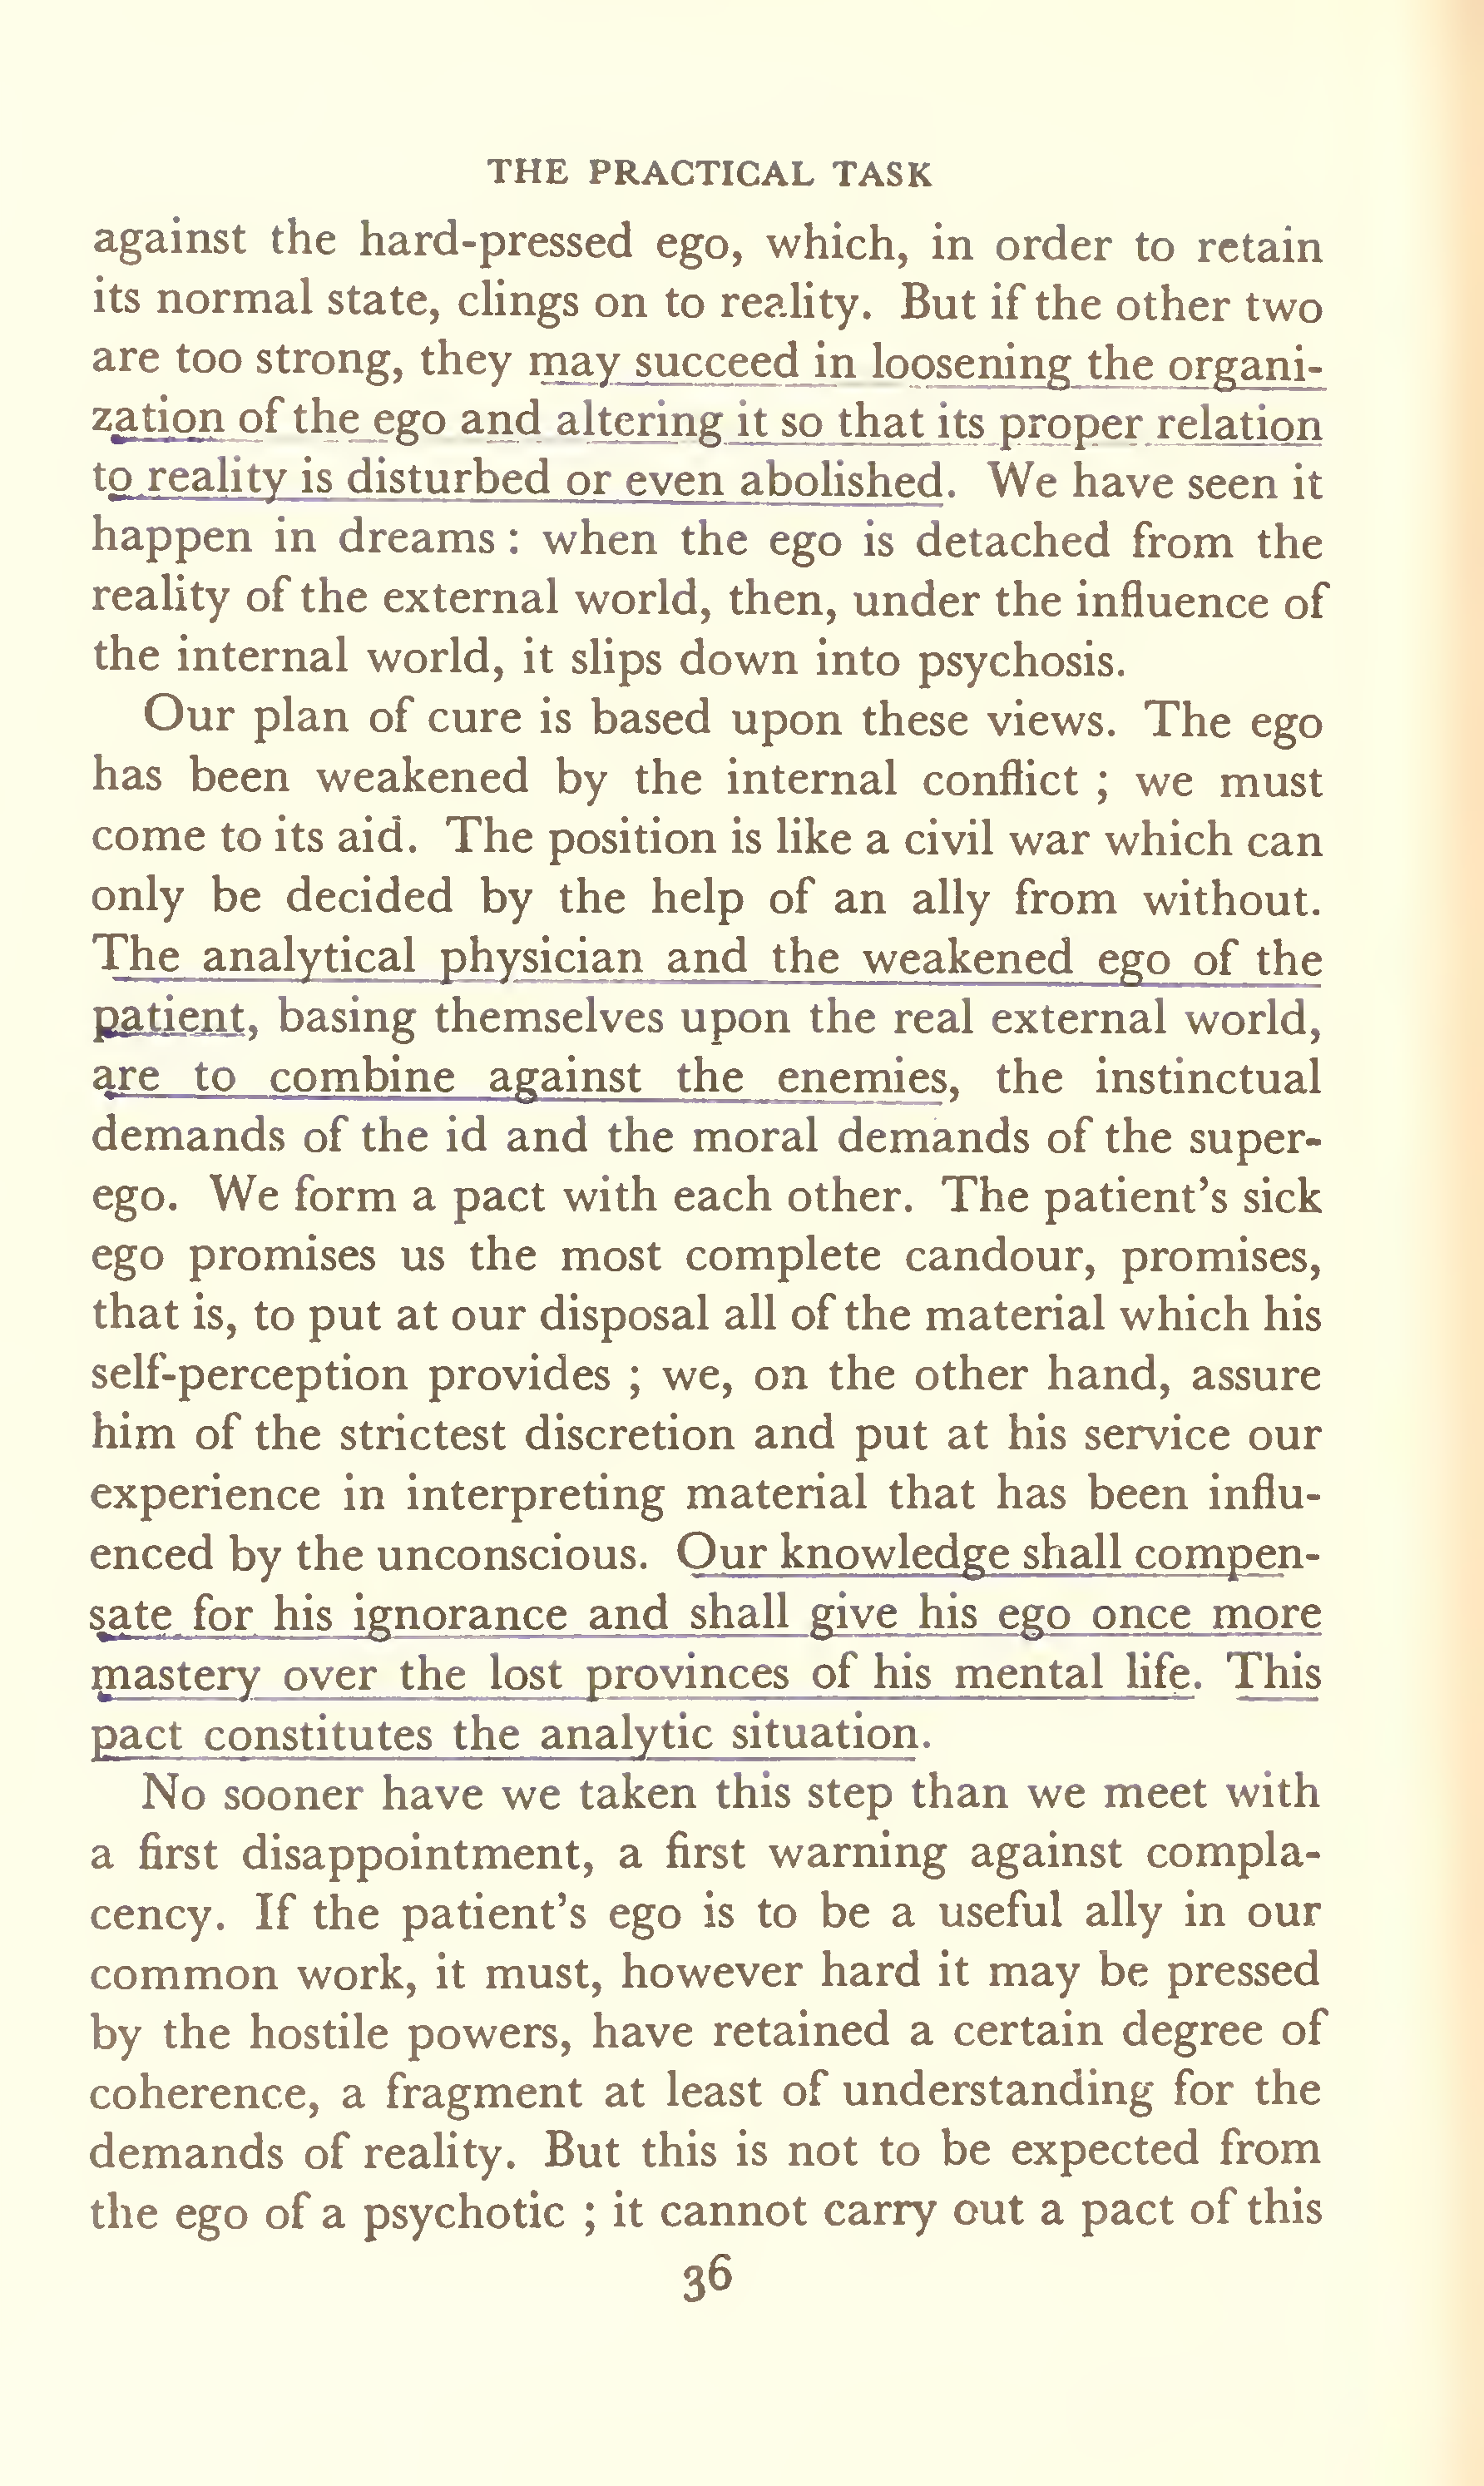 THE PRACTICAL TASK
against the hard-pressed ego, which, in order to retain
its normal state, clings on to reality. But if the other two
are too strong, they may succeed in loosening the organi-
zation of the ego and altering it so that its proper relation
to reality is disturbed or even abolished. We have seen it
happen in dreams : when the ego is detached from the
reality of the external world, then, under the influence of
the internal world, it slips down into psychosis.
Our plan of cure is based upon these views. The ego
has been weakened by the internal conflict ; we must
come to its aid. The position is like a civil war which can
only be decided by the help of an ally from without.
The analytical physician and the weakened ego of the
patient, basing themselves upon the real external world,
are to combine against the enemies, the instinctual
demands of the id and the moral demands of the super-
ego. We form a pact with each other. The patient's sick
ego promises us the most complete candour, promises,
that is, to put at our disposal all of the material which his
self-perception provides ; we, on the other hand, assure
him of the strictest discretion and put at his service our
experience in interpreting material that has been influ-
enced by the unconscious. Our knowledge shall compen-
sate for his ignorance and shall give his ego once more
mastery over the lost provinces of his mental life. This
pact constitutes the analytic situation.
No sooner have we taken this step than we meet with
a first disappointment, a first warning against compla-
cency. If the patient's ego is to be a useful ally in our
common work, it must, however hard it may be pressed
by the hostile powers, have retained a certain degree of
coherence, a fragment at least of understanding for the
demands of reality. But this is not to be expected from
the ego of a psychotic ; it cannot carry out a pact of this
36